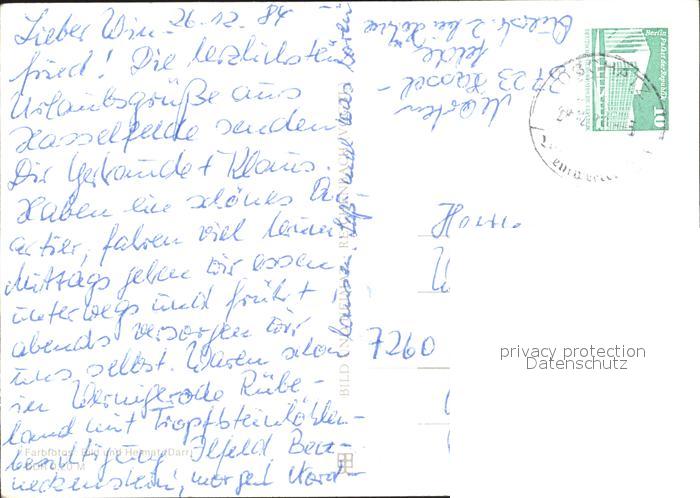 26.12.84
Lieber Win-
fried! Die herzlichsten
Urlaubsgrüße aus
Hasselfelde senden
Dir Gertraude + Klaus.
Haben ein schönes Qu-
artier, fahren viel herum
Mittags gehen wir essen
unterwegs und früh +
abends versorgen wir
uns selbst. Waren schon
in Wernigerode Rübe-
land mit Tropfsteinhöhlen-
besichtigung Ilfeld Ben-
neckenstein, morgen Nord-
hausen. Laß mal was hören
3723 Hassel-
felde
Berlin Palast der Republik
10
Herrn
7260
privacy protection
Datenschutz
Farbfotos: Bild und Heimat
BILD UND HEIMAT REICHENBACH